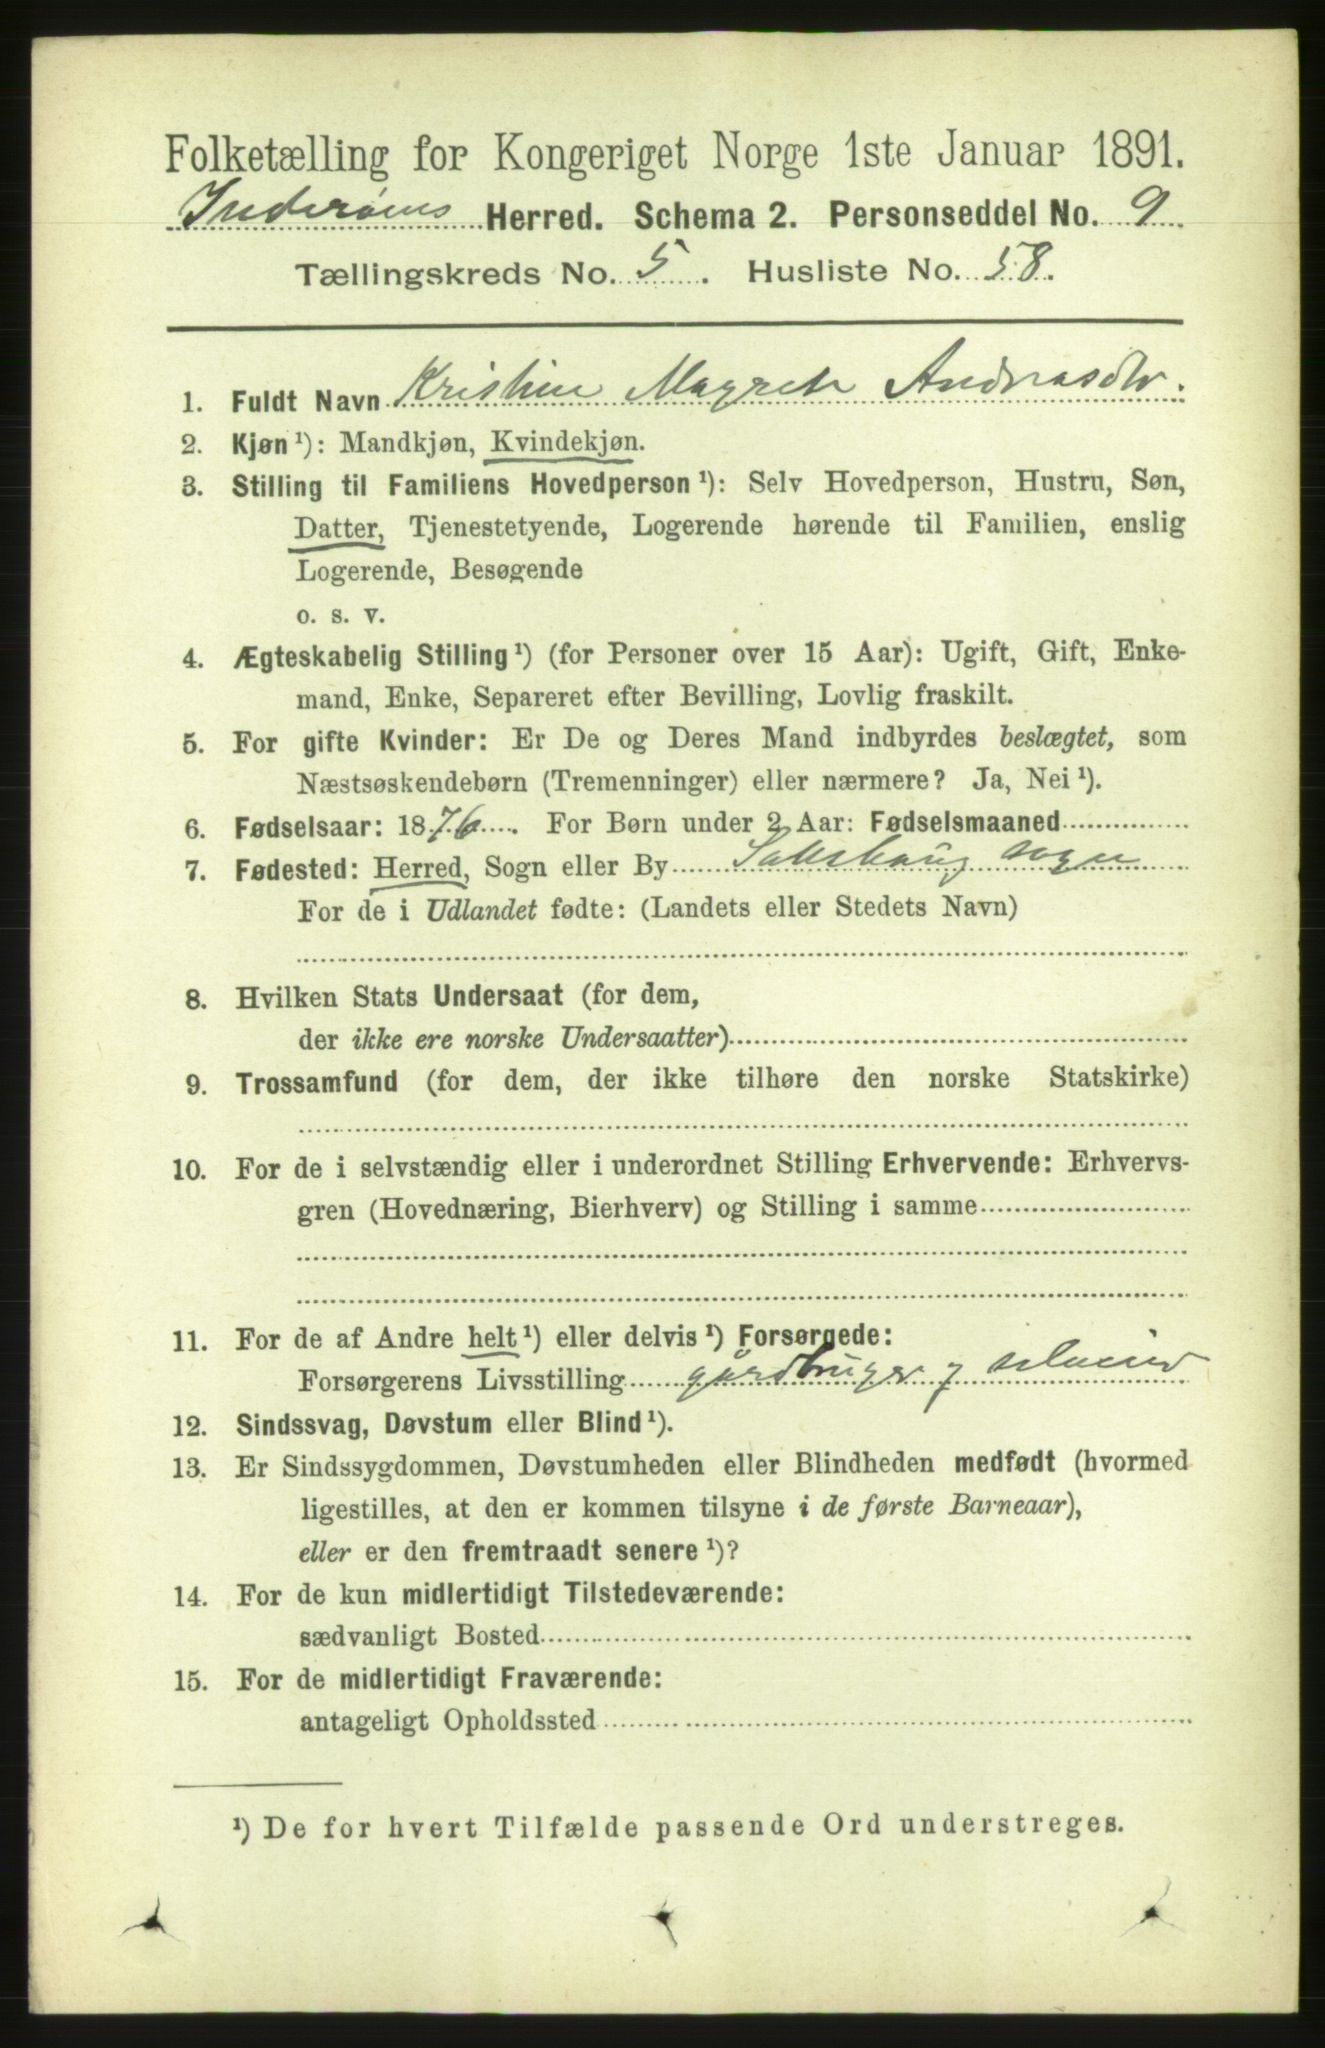 Folketælling for Kongeriget Norge 1ste Januar 1891.
Inderøens Herred. Schema 2. Personseddel No. 9
Tællingskreds No. 5. Husliste No. 58.
1. Fuldt Navn Kristine Magrete Andreasdtr.
2. Kjøn ¹): Mandkjøn, Kvindekjøn.
3. Stilling til Familiens Hovedperson ¹): Selv Hovedperson, Hustru, Søn,
Datter, Tjenestetyende, Logerende hørende til Familien, enslig
Logerende, Besøgende
o. s. v.
4. Ægteskabelig Stilling ¹) (for Personer over 15 Aar): Ugift, Gift, Enke-
mand, Enke, Separeret efter Bevilling, Lovlig fraskilt.
5. For gifte Kvinder: Er De og Deres Mand indbyrdes beslægtet, som
Næstsøskendebørn (Tremenninger) eller nærmere? Ja, Nei ¹).
6. Fødselsaar: 1876. For Børn under 2 Aar: Fødselsmaaned
7. Fødested: Herred, Sogn eller By Sakshaug sogn
For de i Udlandet fødte: (Landets eller Stedets Navn)
8. Hvilken Stats Undersaat (for dem,
der ikke ere norske Undersaatter)
9. Trossamfund (for dem, der ikke tilhøre den norske Statskirke)
10. For de i selvstændig eller i underordnet Stilling Erhvervende: Erhvervs-
gren (Hovednæring, Bierhverv) og Stilling i samme
11. For de af Andre helt ¹) eller delvis ¹) Forsørgede:
Forsørgerens Livsstilling gårdbruger &
12. Sindssvag, Døvstum eller Blind ¹).
13. Er Sindssygdommen, Døvstumheden eller Blindheden medfødt (hvormed
ligestilles, at den er kommen tilsyne i de første Barneaar),
eller er den fremtraadt senere ¹)?
14. For de kun midlertidigt Tilstedeværende:
sædvanligt Bosted
15. For de midlertidigt Fraværende:
antageligt Opholdssted
¹) De for hvert Tilfælde passende Ord understreges.